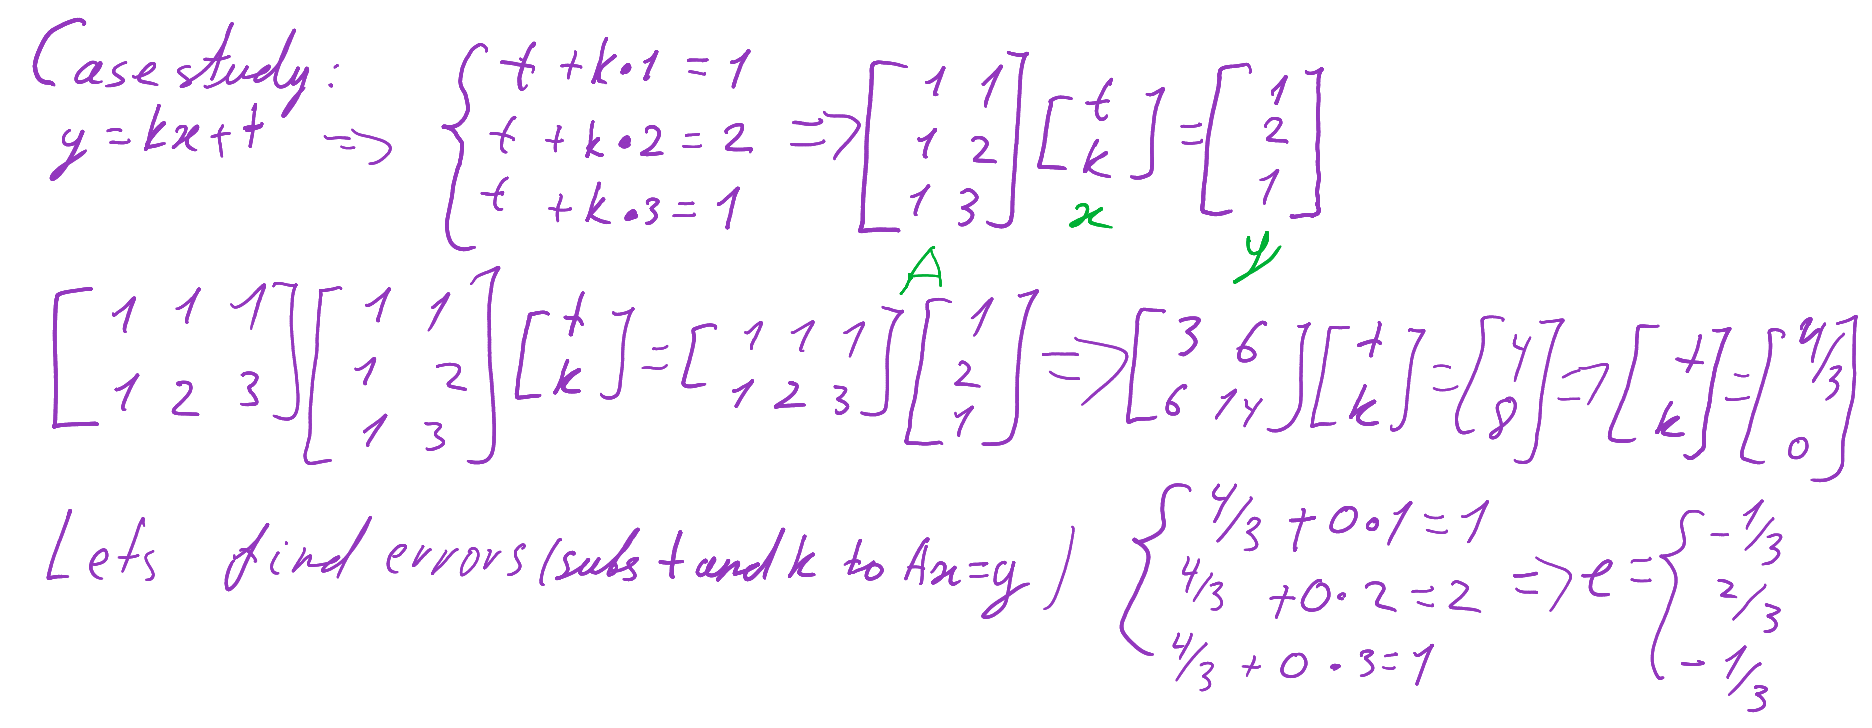 Case study:
y = kx + t => { t + k·1 = 1
t + k·2 = 2
t + k·3 = 1 => [1 1
1 2
1 3] [t
k] = [1
2
1]
A x y
[1 1 1
1 2 3] [1 1
1 2
1 3] [t
k] = [1 1 1
1 2 3] [1
2
1] => [3 6
6 14] [t
k] = [4
8] => [t
k] = [4/3
0]
Lets find errors (subs t and k to Ax=y)
{ 4/3 + 0·1 = 1
4/3 + 0·2 = 2
4/3 + 0·3 = 1 => e = { -1/3
2/3
-1/3